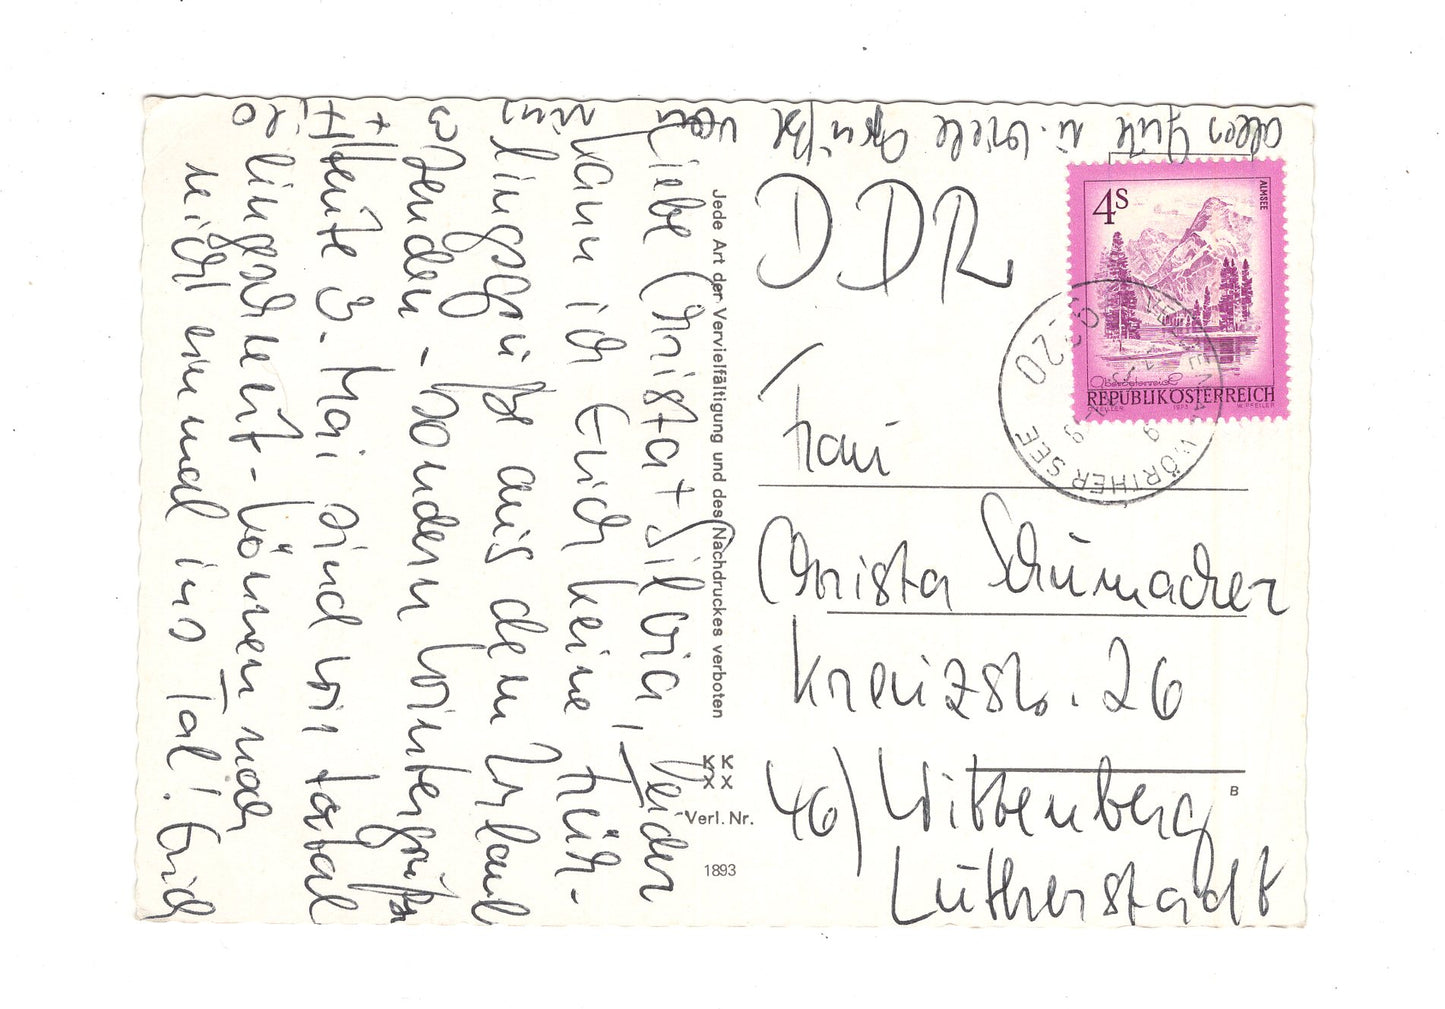 Liebe Christa + Silvia, leider
kann ich Euch keine Früh-
lingsgrüße aus dem Urlaub
senden - sondern Wintergrüße
Heute 3. Mai sind wir total
eingeschneit - können noch
nicht einmal ins Tal! Euch
alles Gute u. viele Grüße von
uns
3
+
Jede Art der Vervielfältigung und des Nachdruckes verboten
KK
XX
Verl. Nr.
1893
DDR
Frau
Christa Schumacher
Kreuzstr. 26
46) Wittenberg
Lutherstadt
B
4S
ALMSEE
Oberösterreich
REPUBLIK ÖSTERREICH
1973
W. PFEILER
WÖRTHER SEE